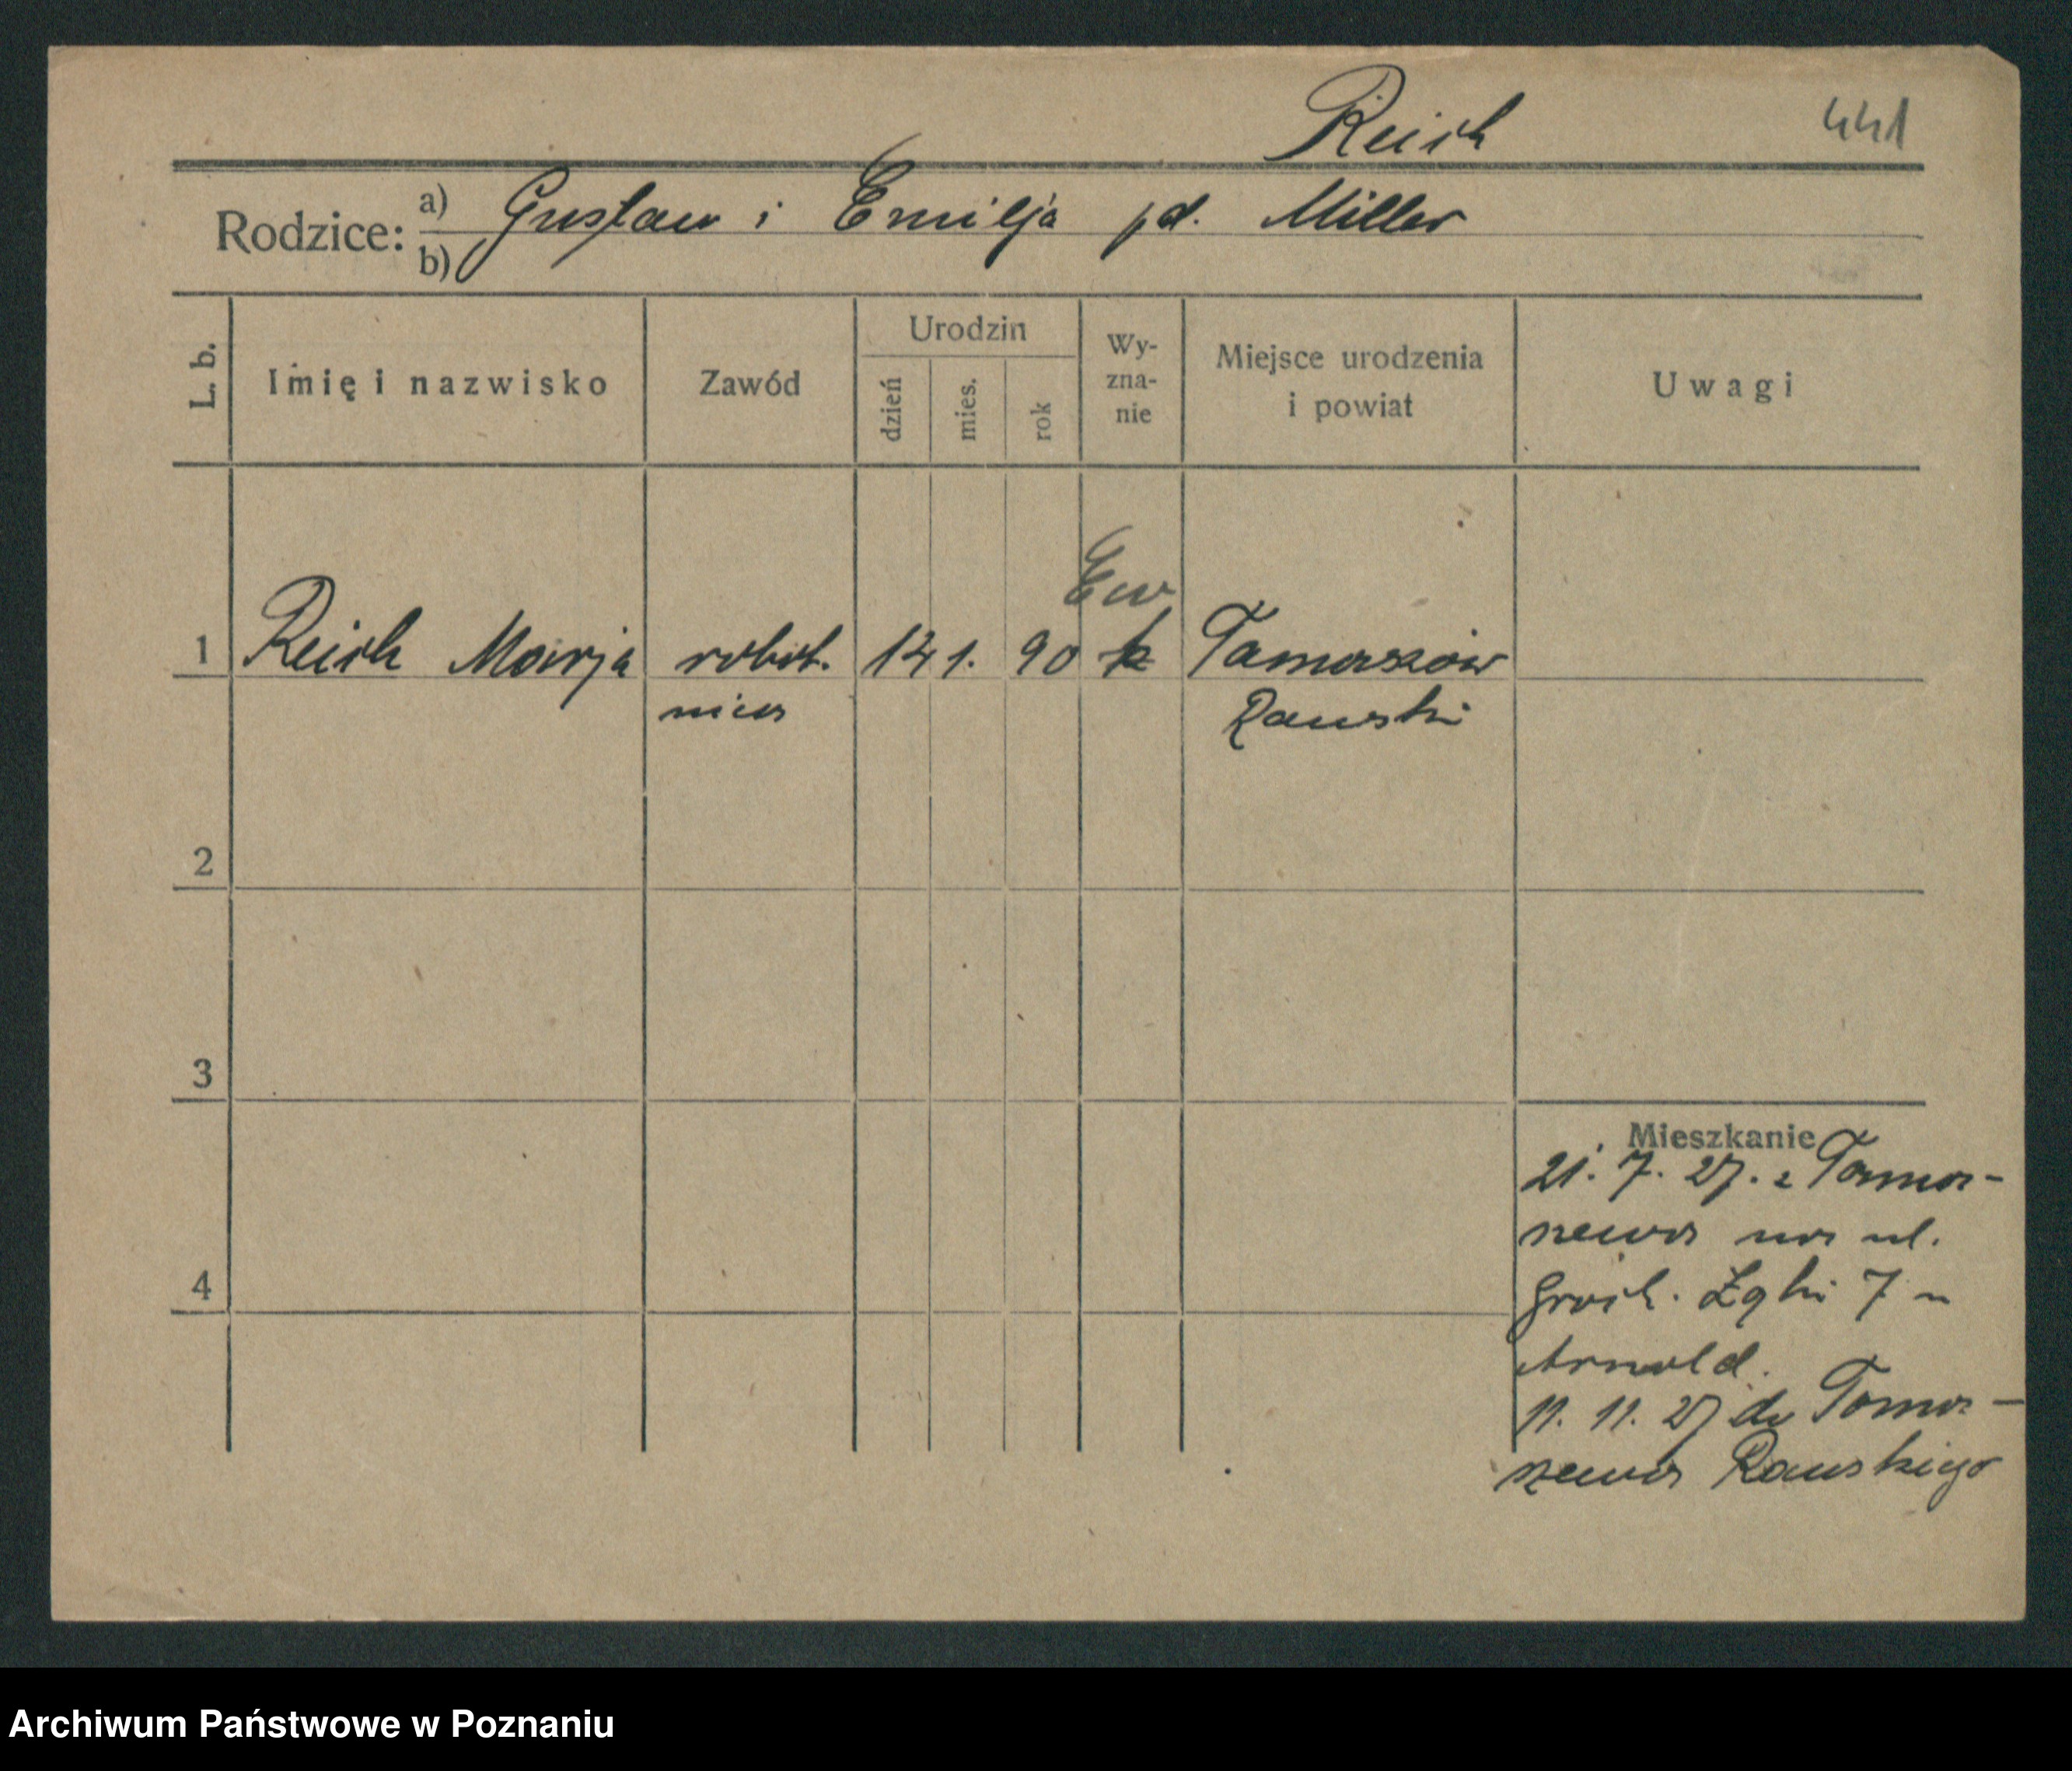 Reich 441
Rodzice: a) Gustaw i Emilja pd. Miller
b)
L. b. Imię i nazwisko Zawód Urodzin dzień mies. rok Wy-zna-nie Miejsce urodzenia i powiat Uwagi
Ew
1 Reich Marja robot. 14 1. 90 k Tomaszów
nica Rawski
2
3
Mieszkanie
21. 7. 27. z Toma-
szewa na ul.
4
Groch. Łąki 7 u
Arnold.
11. 11. 27 do Toma-
szewa Rawskiego
Archiwum Państwowe w Poznaniu